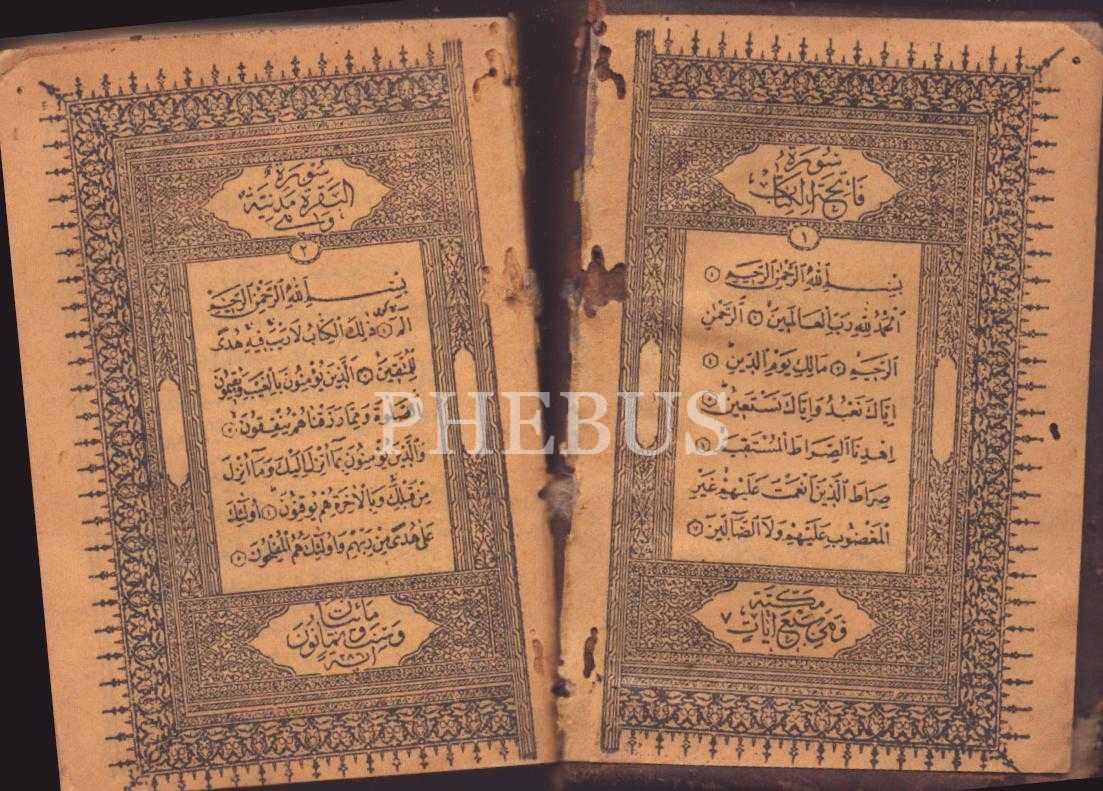 سورة
فاتحة الكتاب
١
بِسْمِ اللهِ الرَّحْمٰنِ الرَّحِيمِ ١
اَلْحَمْدُ لِلّٰهِ رَبِّ الْعَالَمِينَ ٢ اَلرَّحْمٰنِ
الرَّحِيمِ ٣ مَالِكِ يَوْمِ الدِّينِ ٤
اِيَّاكَ نَعْبُدُ وَاِيَّاكَ نَسْتَعِينُ ٥
اِهْدِنَا الصِّرَاطَ الْمُسْتَقِيمَ ٦
صِرَاطَ الَّذِينَ اَنْعَمْتَ عَلَيْهِمْ غَيْرِ
الْمَغْضُوبِ عَلَيْهِمْ وَلَا الضَّالِّينَ ٧
مكية
وهي سبع آيات ٧
سورة
البقرة مدنية
وهي
٢
بِسْمِ اللهِ الرَّحْمٰنِ الرَّحِيمِ
الم ١ ذٰلِكَ الْكِتَابُ لَا رَيْبَ فِيهِ هُدًى
لِلْمُتَّقِينَ ٢ اَلَّذِينَ يُؤْمِنُونَ بِالْغَيْبِ وَيُقِيمُونَ
الصَّلٰوةَ وَمِمَّا رَزَقْنَاهُمْ يُنْفِقُونَ ٣
وَالَّذِينَ يُؤْمِنُونَ بِمَا اُنْزِلَ اِلَيْكَ وَمَا اُنْزِلَ
مِنْ قَبْلِكَ وَبِالْاٰخِرَةِ هُمْ يُوقِنُونَ ٤ اُولٰئِكَ
عَلٰى هُدًى مِنْ رَبِّهِمْ وَاُولٰئِكَ هُمُ الْمُفْلِحُونَ ٥
مائتان
وست وثمانون
آية
PHEBUS